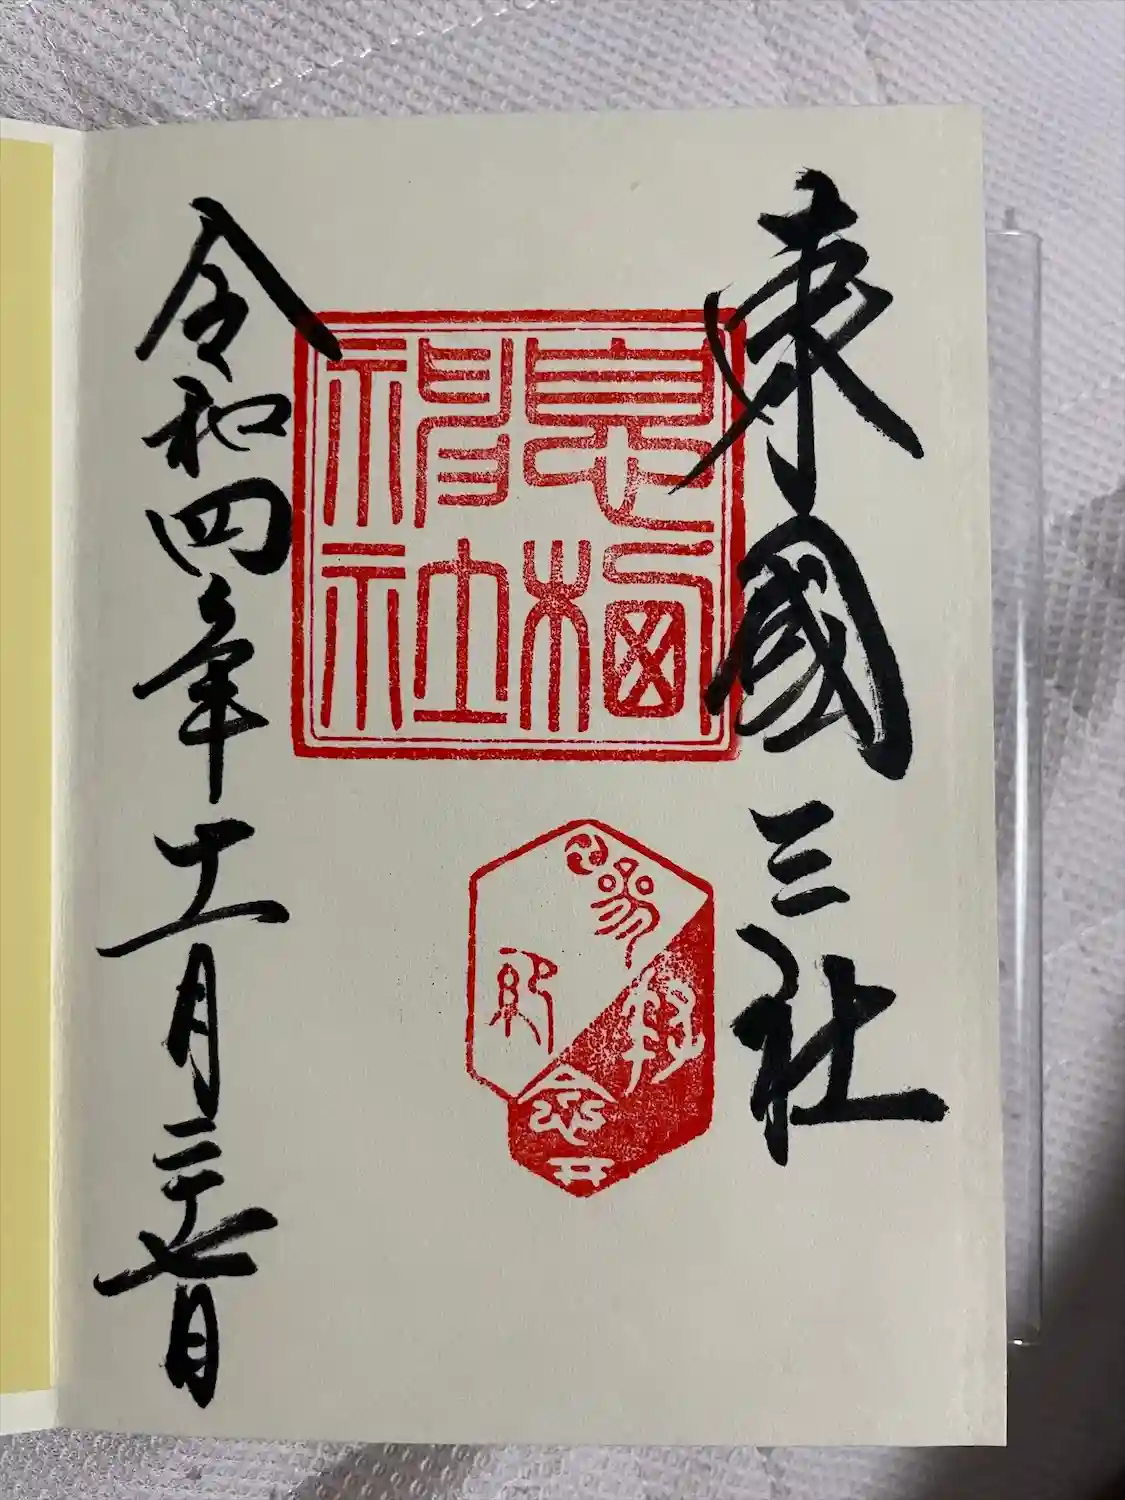 東國三社
息栖
神社
令和四年十一月二十七日